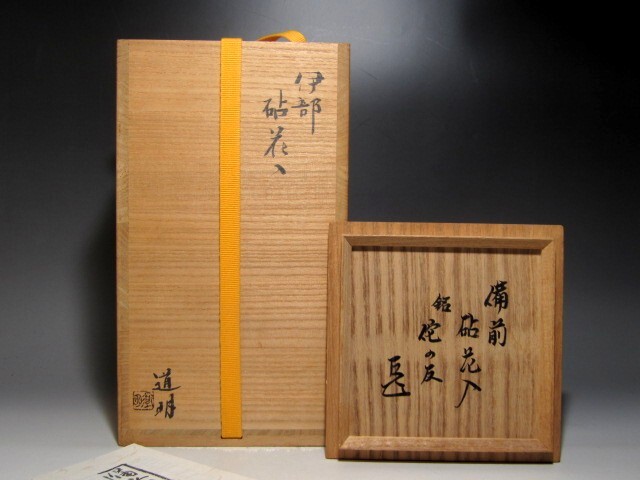 伊部
砧花入
道明
備前
砧花入
銘
侘の友